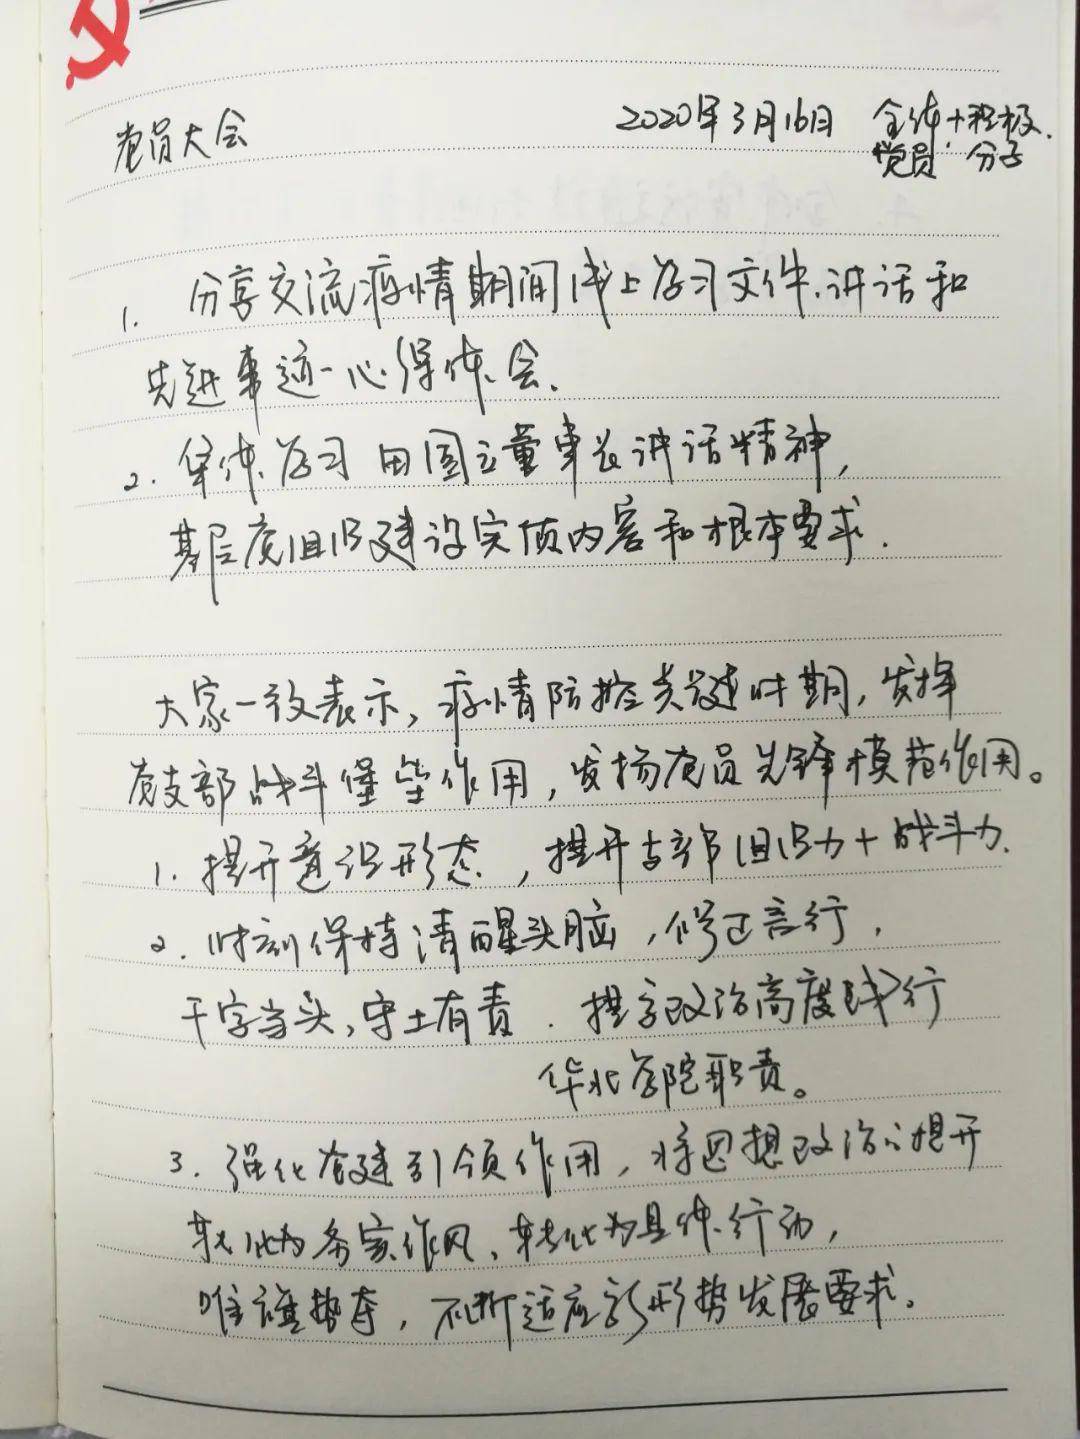 党员大会 2020年3月16日 全体+积极
党员 分子
1. 分享交流疫情期间线上学习文件、讲话和
先进事迹心得体会.
2. 集体学习田国立董事长讲话精神,
基层党组织建设实质内容和根本要求.
大家一致表示, 疫情防控关键时期, 发挥
党支部战斗堡垒作用, 发扬党员先锋模范作用。
1. 提升意识形态, 提升支部组织力+战斗力.
2. 时刻保持清醒头脑, 修正言行,
干字当头, 守土有责. 提高政治高度践行
华北学院职责。
3. 强化党建引领作用, 将思想政治提升
转化为务实作风、转化为具体行动,
唯旗势夺, 不断适应新形势发展要求。